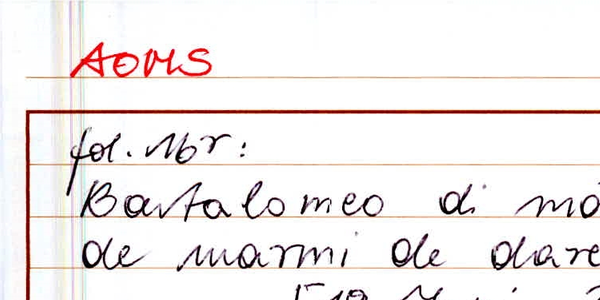 AOMS
fol. 16r:
Bartalomeo di
de marmi de dare